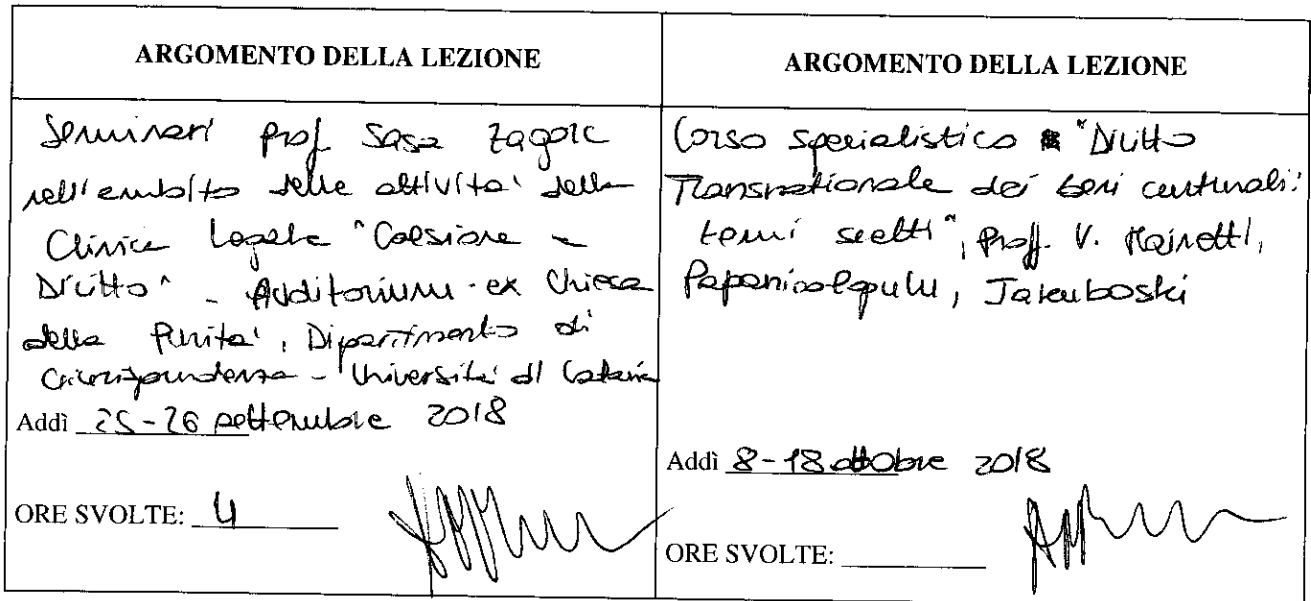 ARGOMENTO DELLA LEZIONE
Seminari Prof Sasa Zagorc
nell'ambito delle attività della
Clinica Legale "Coesione e
Diritto" - Auditorium ex Chiesa
della Purità, Dipartimento di
Giurisprudenza - Università di Catania
Addì 25-26 settembre 2018
ORE SVOLTE: 4
ARGOMENTO DELLA LEZIONE
Corso specialistico "Diritto
Transnazionale dei beni culturali:
temi scelti", Proff. V. Mainetti,
Papanicolopulu, Jakuboski
Addì 8-18 ottobre 2018
ORE SVOLTE: